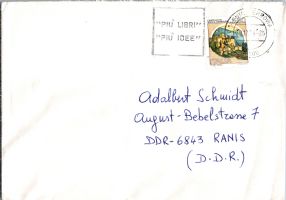 "PIU' LIBRI"
"PIU' IDEE"
Adalbert Schmidt
August-Bebelstrasse 7
DDR-6843 RANIS
(D.D.R.)